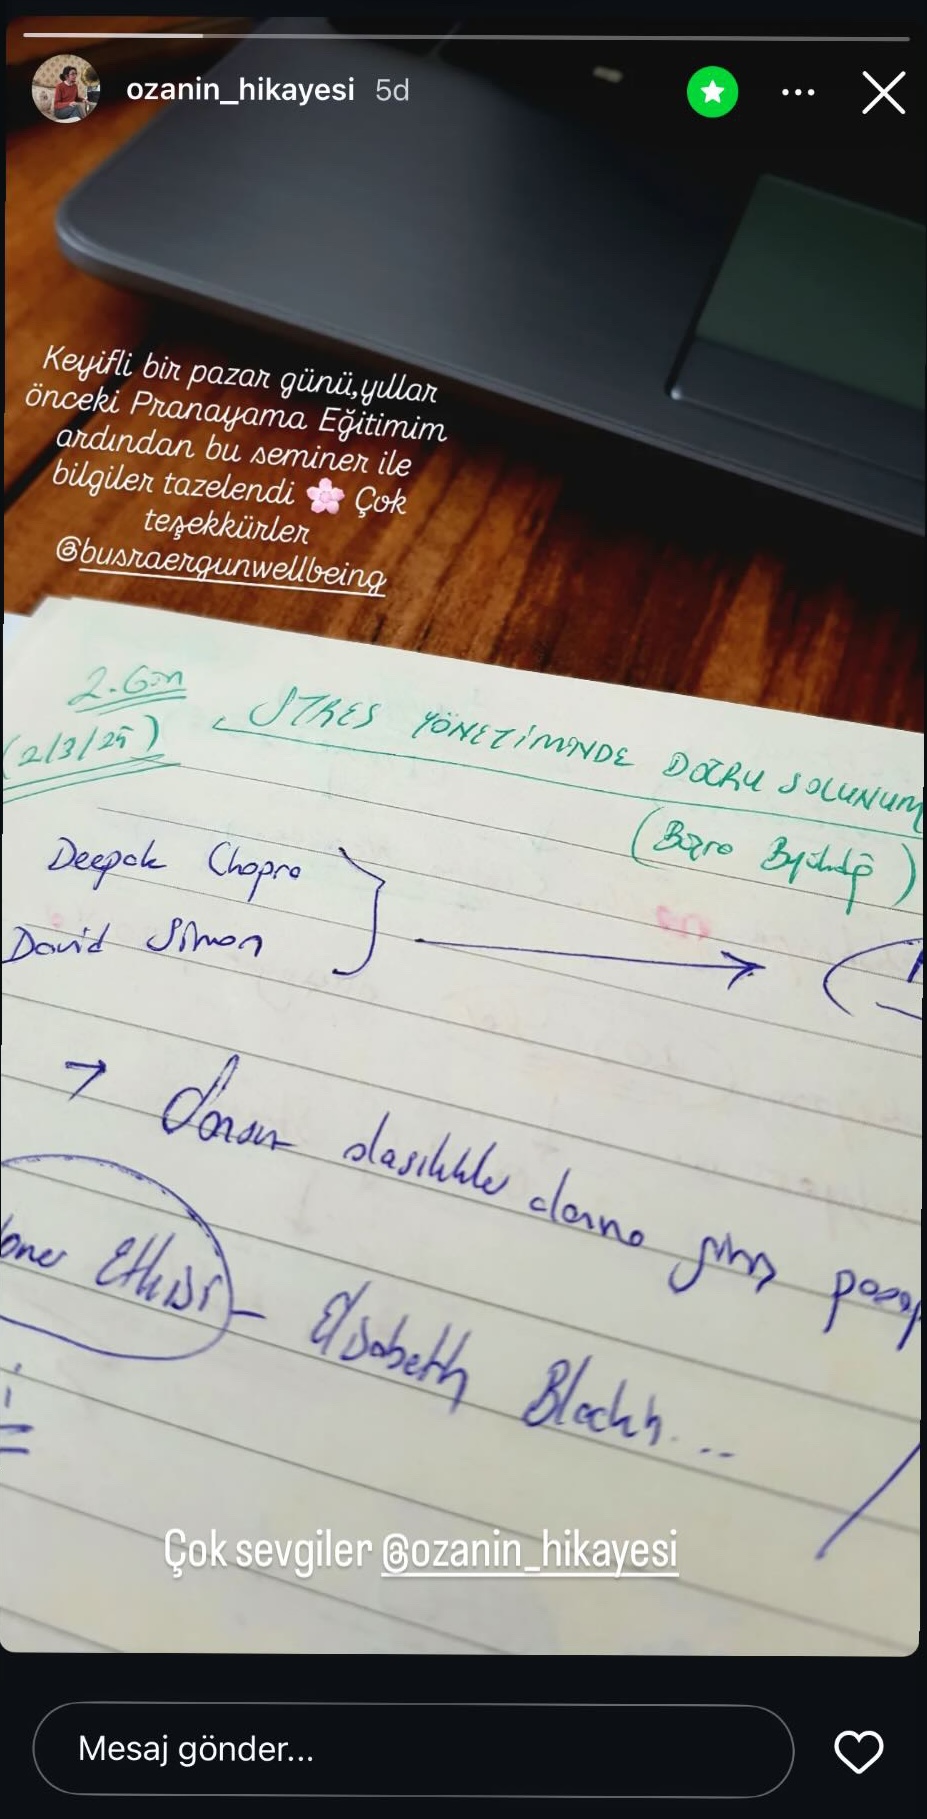 ozanin_hikayesi 5d
Keyifli bir pazar günü,yıllar
önceki Pranayama Eğitimim
ardından bu seminer ile
bilgiler tazelendi 🌸 Çok
teşekkürler
@busraergunwellbeing
2. Gün
(2/3/25)
STRES YÖNETİMİNDE DOĞRU SOLUNUM
Deepak Chopra
David Simon
→
Etkisi - Elisabeth
Çok sevgiler @ozanin_hikayesi
Mesaj gönder...